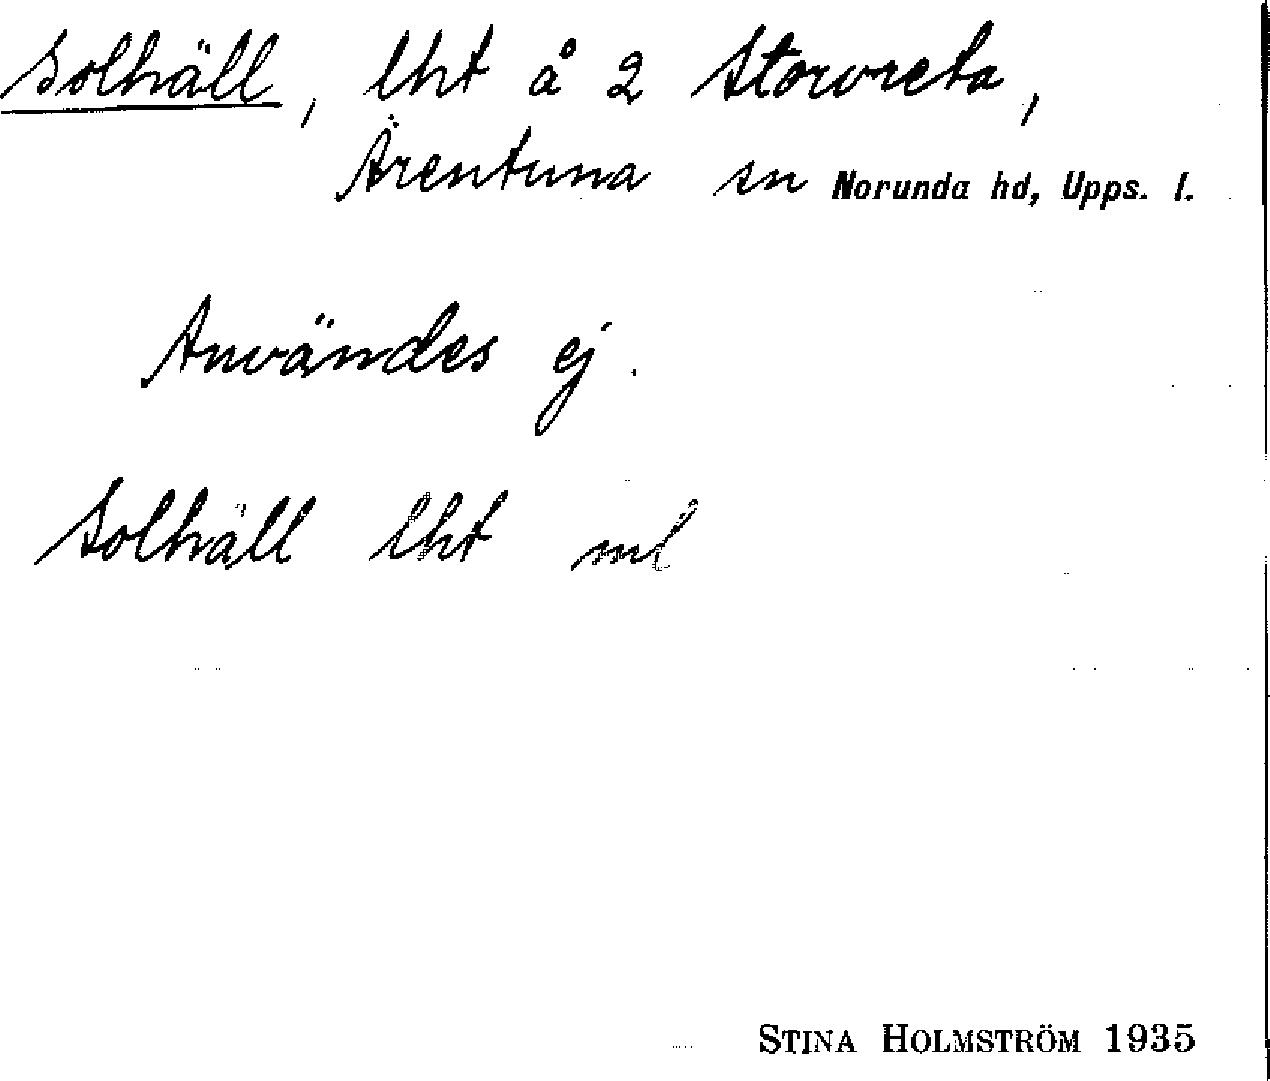 Solhäll, lht å 2 Storvreta,
Ärentuna sn Norunda hd, Upps. l.
Användes ej.
Solhäll lht ml
STINA HOLMSTRÖM 1935